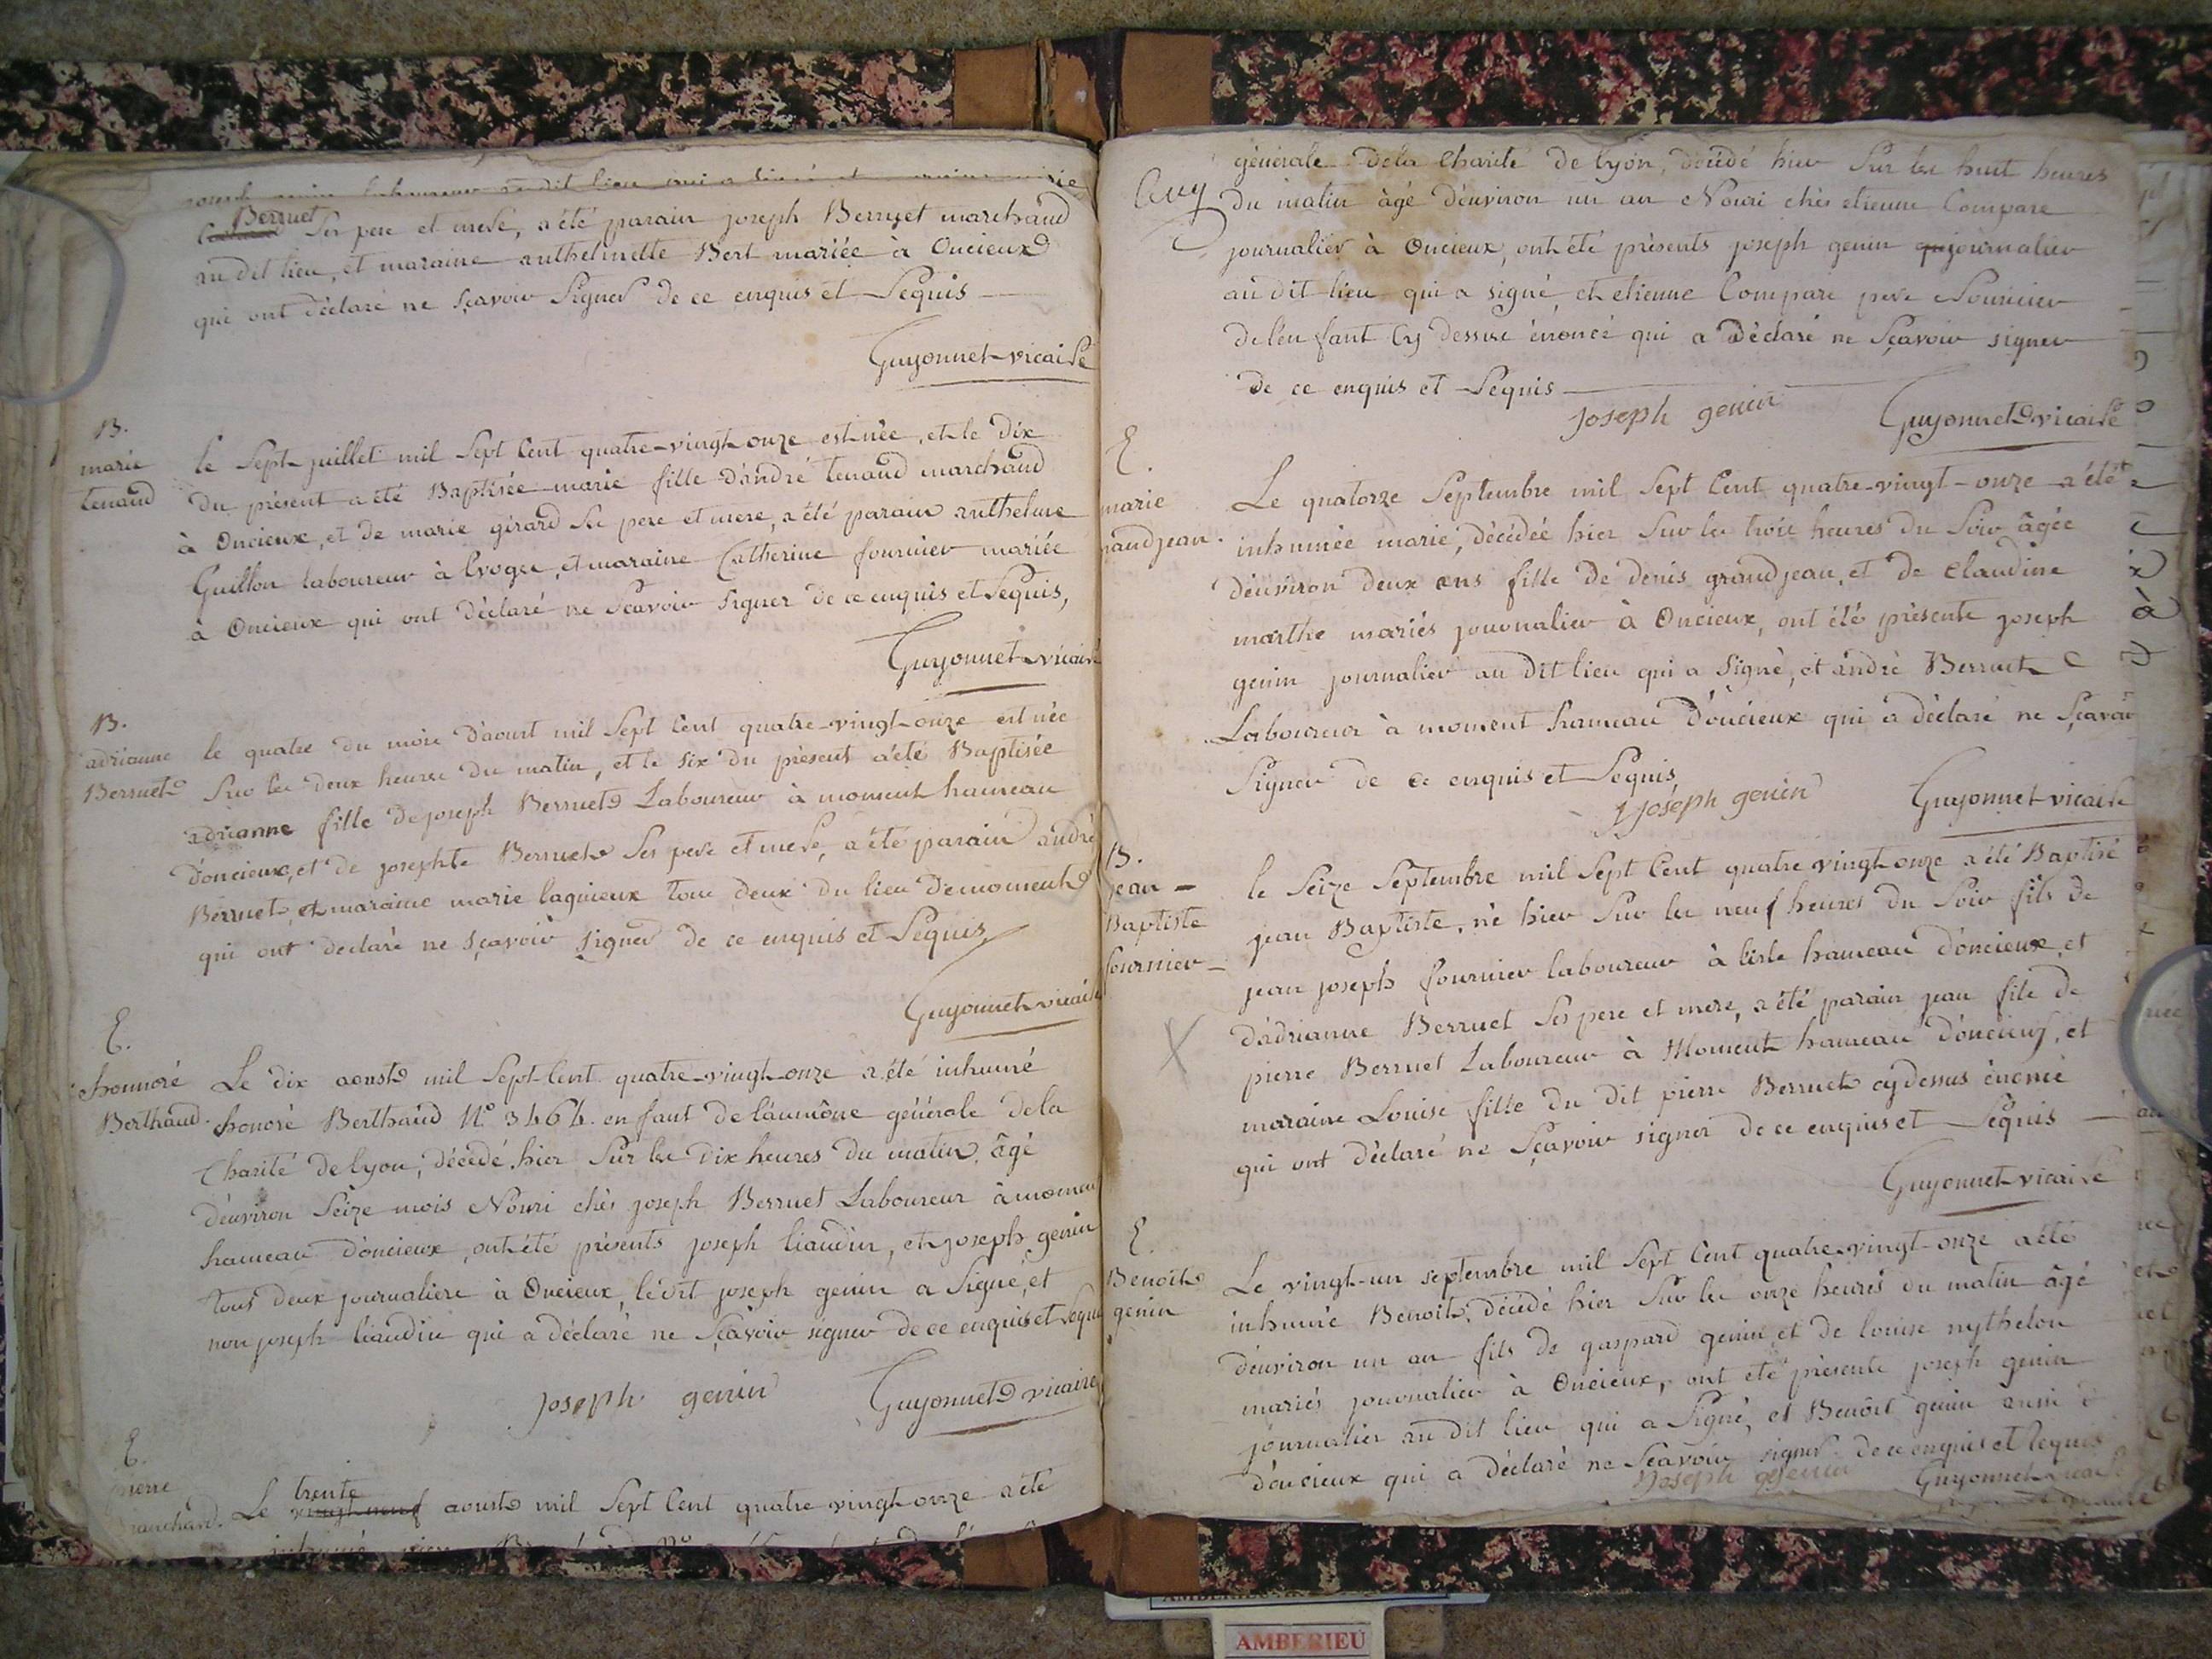 Berruet
Ses pere et mere, a été parain joseph Berruet marchand
au dit lieu, et maraine anthelmette Bert mariée à Oncieux
qui ont déclaré ne sçavoir signer de ce enquis et Requis
Guyonnet vicaire
B.
marie
tenand
le sept juillet mil sept cent quatre-vingt onze est née, et le dix
du présent a été Baptisée marie fille d'andré tenand marchand
à Oncieux, et de marie girard ses pere et mere, a été parain anthelme
Guillon laboureur à Evoges, et maraine Catherine fournier mariée
à Oncieux qui ont déclaré ne sçavoir signer de ce enquis et Requis,
Guyonnet vicaire
B.
adrianne
Berruet
le quatre du mois d'aoust mil sept cent quatre-vingt onze est née
sur les deux heures du matin, et le six du présent a été Baptisée
adrianne fille de joseph Berruet Laboureur à moment hameau
d'oncieux, et de josephte Berruet ses pere et mere, a été parain andré
Berruet, et maraine marie lagnieux tous deux du lieu de moment
qui ont declaré ne sçavoir signer de ce enquis et Requis
Guyonnet vicaire
E.
honnoré
Berthaud.
Le dix aoust mil sept cent quatre-vingt onze a été inhumé
honoré Berthaud N.º 3464. enfant de l'aumône générale de la
Charité de lyon, décédé hier sur les dix heures du matin, âgé
d'environ seize mois Nouri chés joseph Berruet Laboureur à momen
hameau d'oncieux, ont été présents joseph liaudin, et joseph genin
tous deux journaliers à Oncieux, le dit joseph genin a signé, et
non joseph liaudin qui a déclaré ne sçavoir signer de ce enquis et Requi
joseph genin Guyonnet vicaire
E.
pierre
Le trente vingt neuf aoust mil sept cent quatre vingt onze a été
générale de la Charité de lyon, décédé hier sur les huit heures
du matin âgé d'environ un an Nouri chés etienne Compare
journalier à Oncieux, ont été présents joseph genin journalier
au dit lieu qui a signé, et etienne Compare pere Nouricier
de l'enfant cy dessus énoncé qui a déclaré ne sçavoir signer
de ce enquis et Requis
joseph genin Guyonnet vicaire
E.
marie
randjean.
Le quatorze septembre mil sept cent quatre-vingt-onze a été
inhumée marie, décédée hier sur les trois heures du soir âgée
d'environ deux ans fille de denis grandjean, et de claudine
marthe mariés journalier à Oncieux, ont été présents joseph
genin journalier au dit lieu qui a signé, et andré Berruet
Laboureur à moment hameau d'oncieux qui a déclaré ne sçavoir
signer de ce enquis et Requis
joseph genin Guyonnet vicaire
B.
jean
Baptiste
fournier
le seize septembre mil sept cent quatre vingt onze a été Baptisé
jean Baptiste, né hier sur les neuf heures du soir fils de
jean joseph fournier laboureur à l'isle hameau d'oncieux, et
d'adrianne Berruet ses pere et mere, a été parain jean fils de
pierre Berruet Laboureur à Moment hameau d'oncieux, et
maraine Louise fille du dit pierre Berruet cy dessus énoncé
qui ont déclaré ne sçavoir signer de ce enquis et Requis
Guyonnet vicaire
E.
Benoit
genin
Le vingt-un septembre mil sept cent quatre-vingt-onze a été
inhumé Benoit, décédé hier sur les onze heures du matin âgé
d'environ un an fils de gaspard genin, et de louise mythelon
mariés journalier à Oncieux, ont été présents joseph genin
journalier au dit lieu qui a signé, et Benôit genin aussi
d'oncieux qui a déclaré ne sçavoir signer de ce enquis et Requis
joseph genin Guyonnet vicaire
AMBERIEU